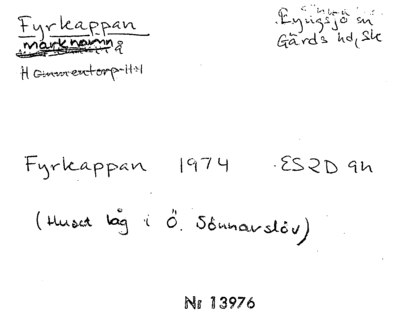 Fyrkappan
marknamn å
H Gummentorp H+1
Lyngsjö sn
Gärds hd, Sk
Fyrkappan 1974 ES2D 9h
(Huset låg i Ö. Sönnarslöv)
Nr 13976